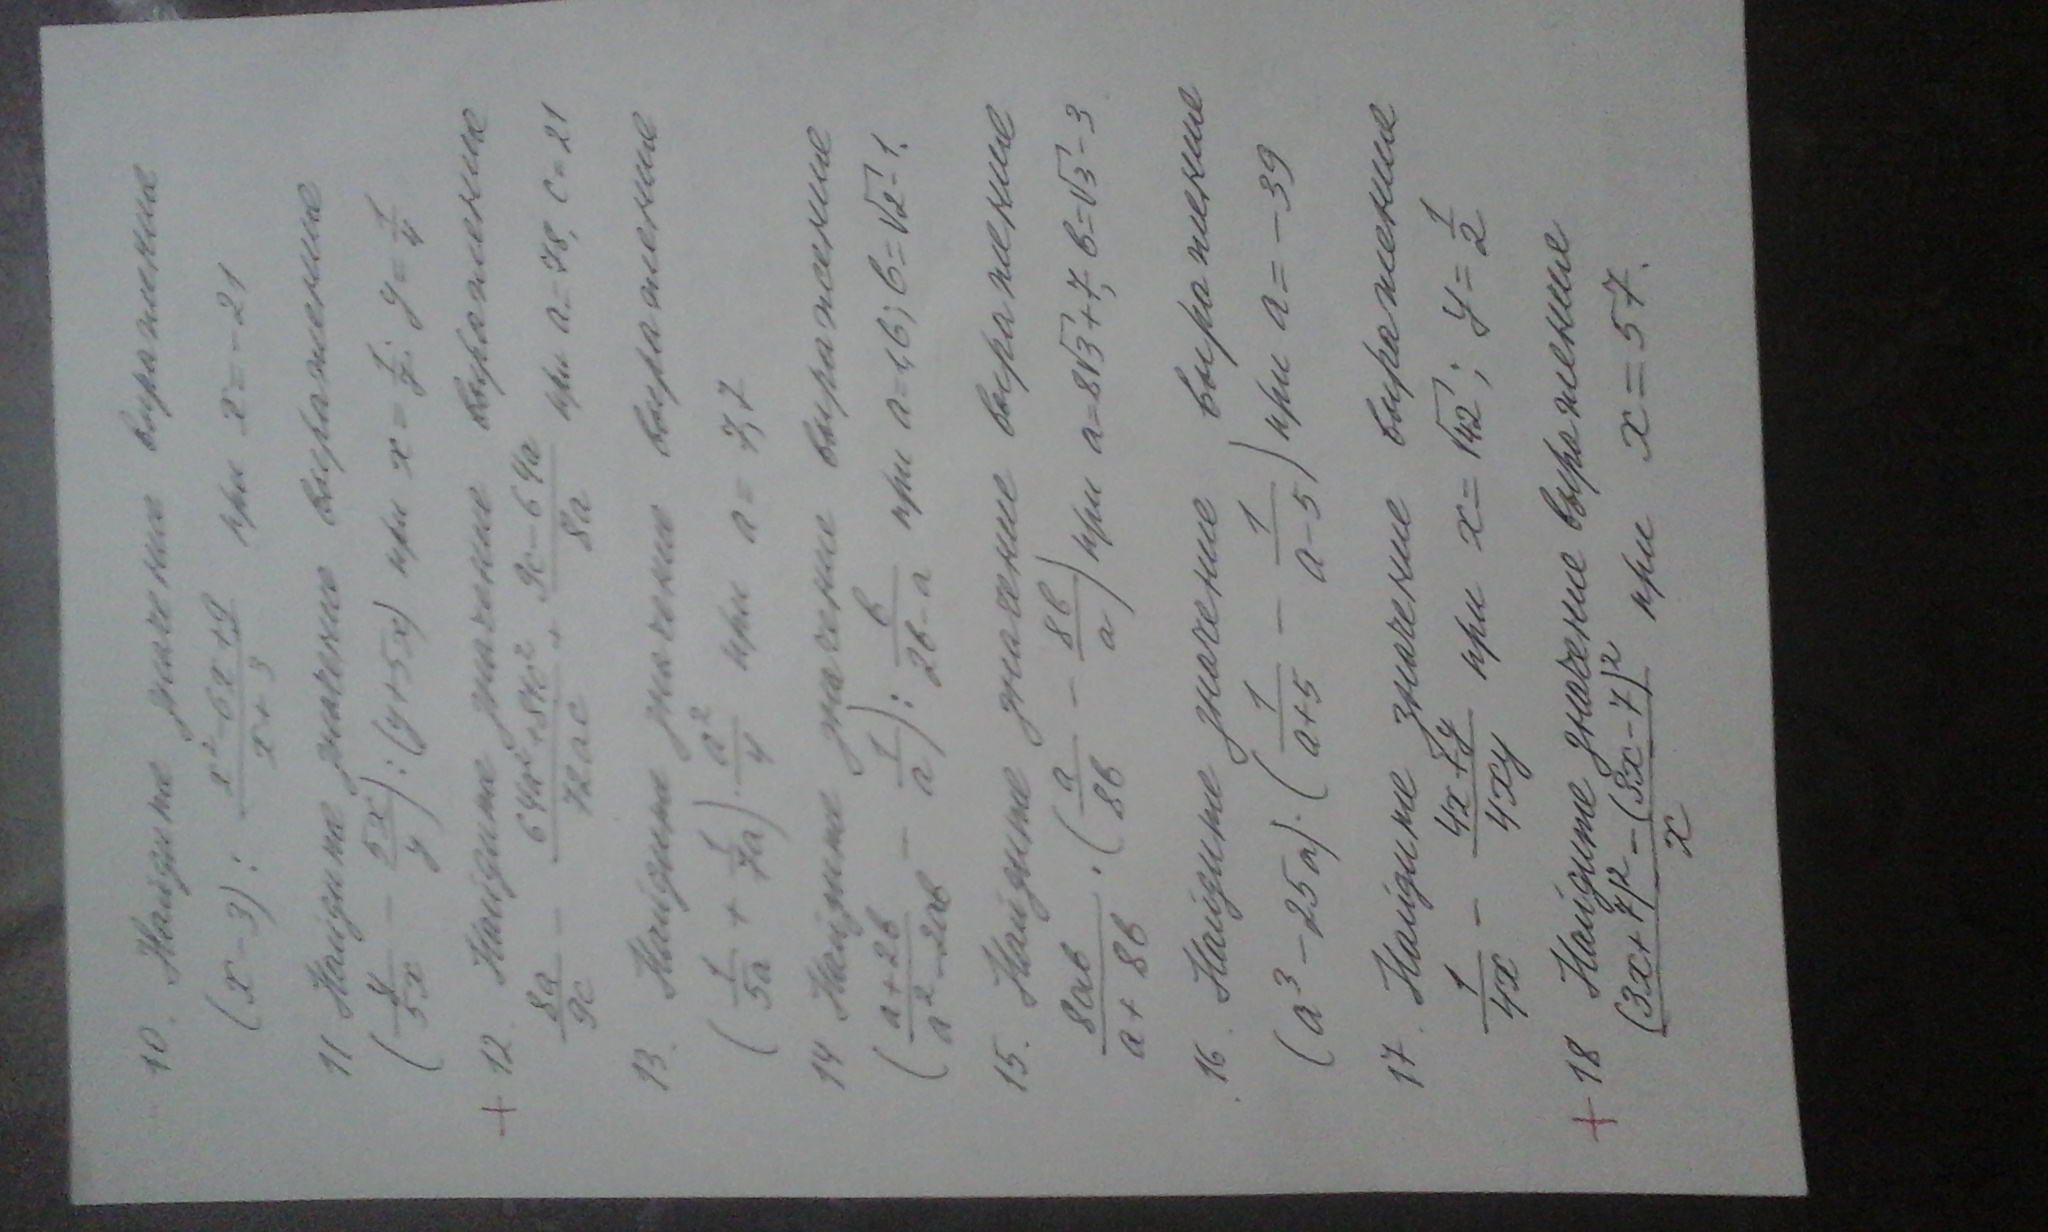 10. Найдите значение выражения
(x-3) : \frac{x^2-6x+9}{x+3} при x=-21
11 Найдите значение выражения
(\frac{y}{5x} - \frac{5x}{y}) : (y+5x) при x=\frac{1}{7}; y=\frac{1}{4}
+ 12. Найдите значение выражения
\frac{8a}{9c} - \frac{64a^2+81c^2}{72ac} + \frac{9c-64a}{8a} при a=78, c=21
13. Найдите значение выражения
(\frac{1}{5a} + \frac{1}{7a}) · \frac{a^2}{4} при a=7,7
14 Найдите значение выражения
(\frac{a+2b}{a^2-2ab} - \frac{1}{a}) : \frac{b}{2b-a} при a=1,6; b=√2-1.
15. Найдите значение выражения
\frac{8ab}{a+8b} · (\frac{a}{8b} - \frac{8b}{a}) при a=8√3+7, b=√3-3
16. Найдите значение выражения
(a^3-25a) · (\frac{1}{a+5} - \frac{1}{a-5}) при a=-39
17. Найдите значение выражения
\frac{1}{4x} - \frac{4x+7y}{4xy} при x=√42; y=\frac{1}{2}
+ 18 Найдите значение выражения
\frac{(3x+7)^2-(3x-7)^2}{x} при x=57.